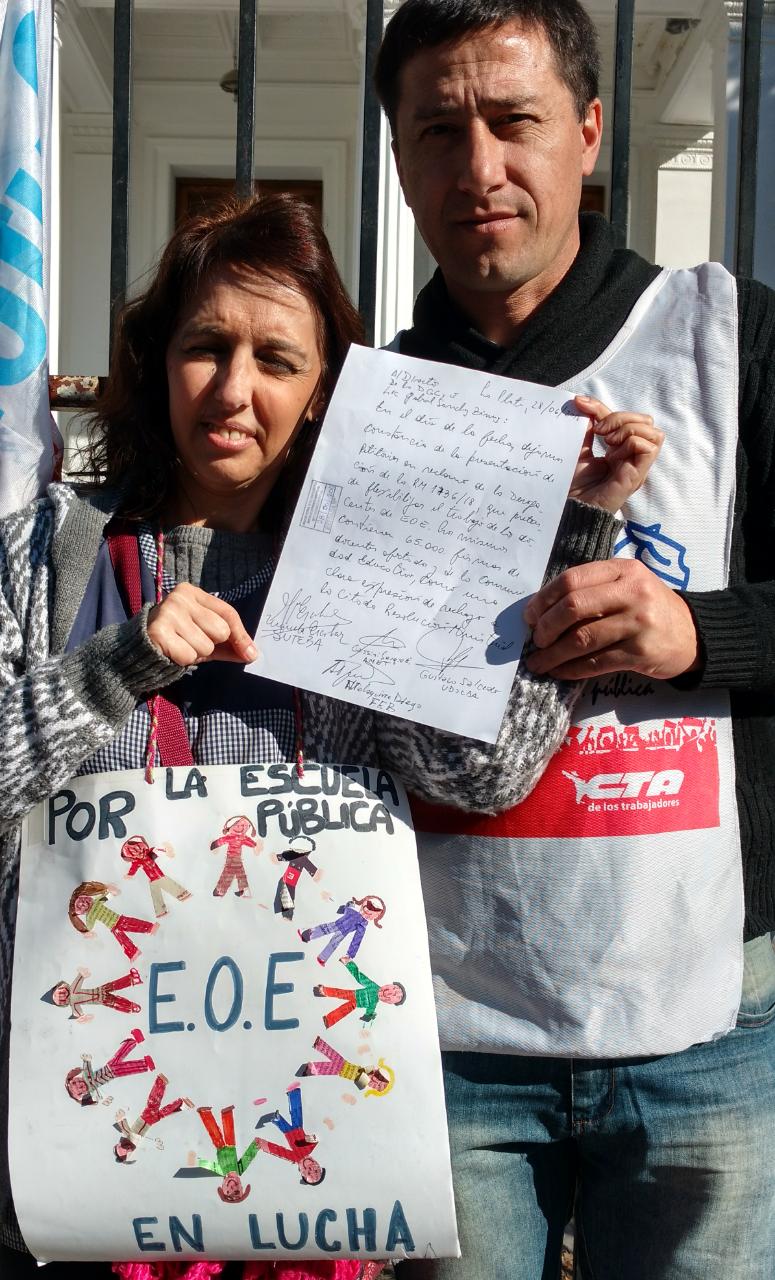 La Plata, 28/06
Al Director
de la DGCyE
Lic Gabriel Sanchez Zinny:
En el día de la fecha, dejamos
constancia de la presentación de
Petitorio en reclamo de la Deroga-
ción de la RM 1736/18, que preten-
de flexibilizar el trabajo de los do-
centes de EOE. Los mismos
contienen 65.000 firmas de
docentes afectados y de la Comuni-
dad Educativa, como una
clara expresión de rechazo a
la citada Resolución Ministerial
SUTEBA
AMET
Gustavo Salcedo
UDOCBA
Diego
FEB
pública
CTA
de los trabajadores
POR LA ESCUELA
PÚBLICA
E.O.E
EN LUCHA